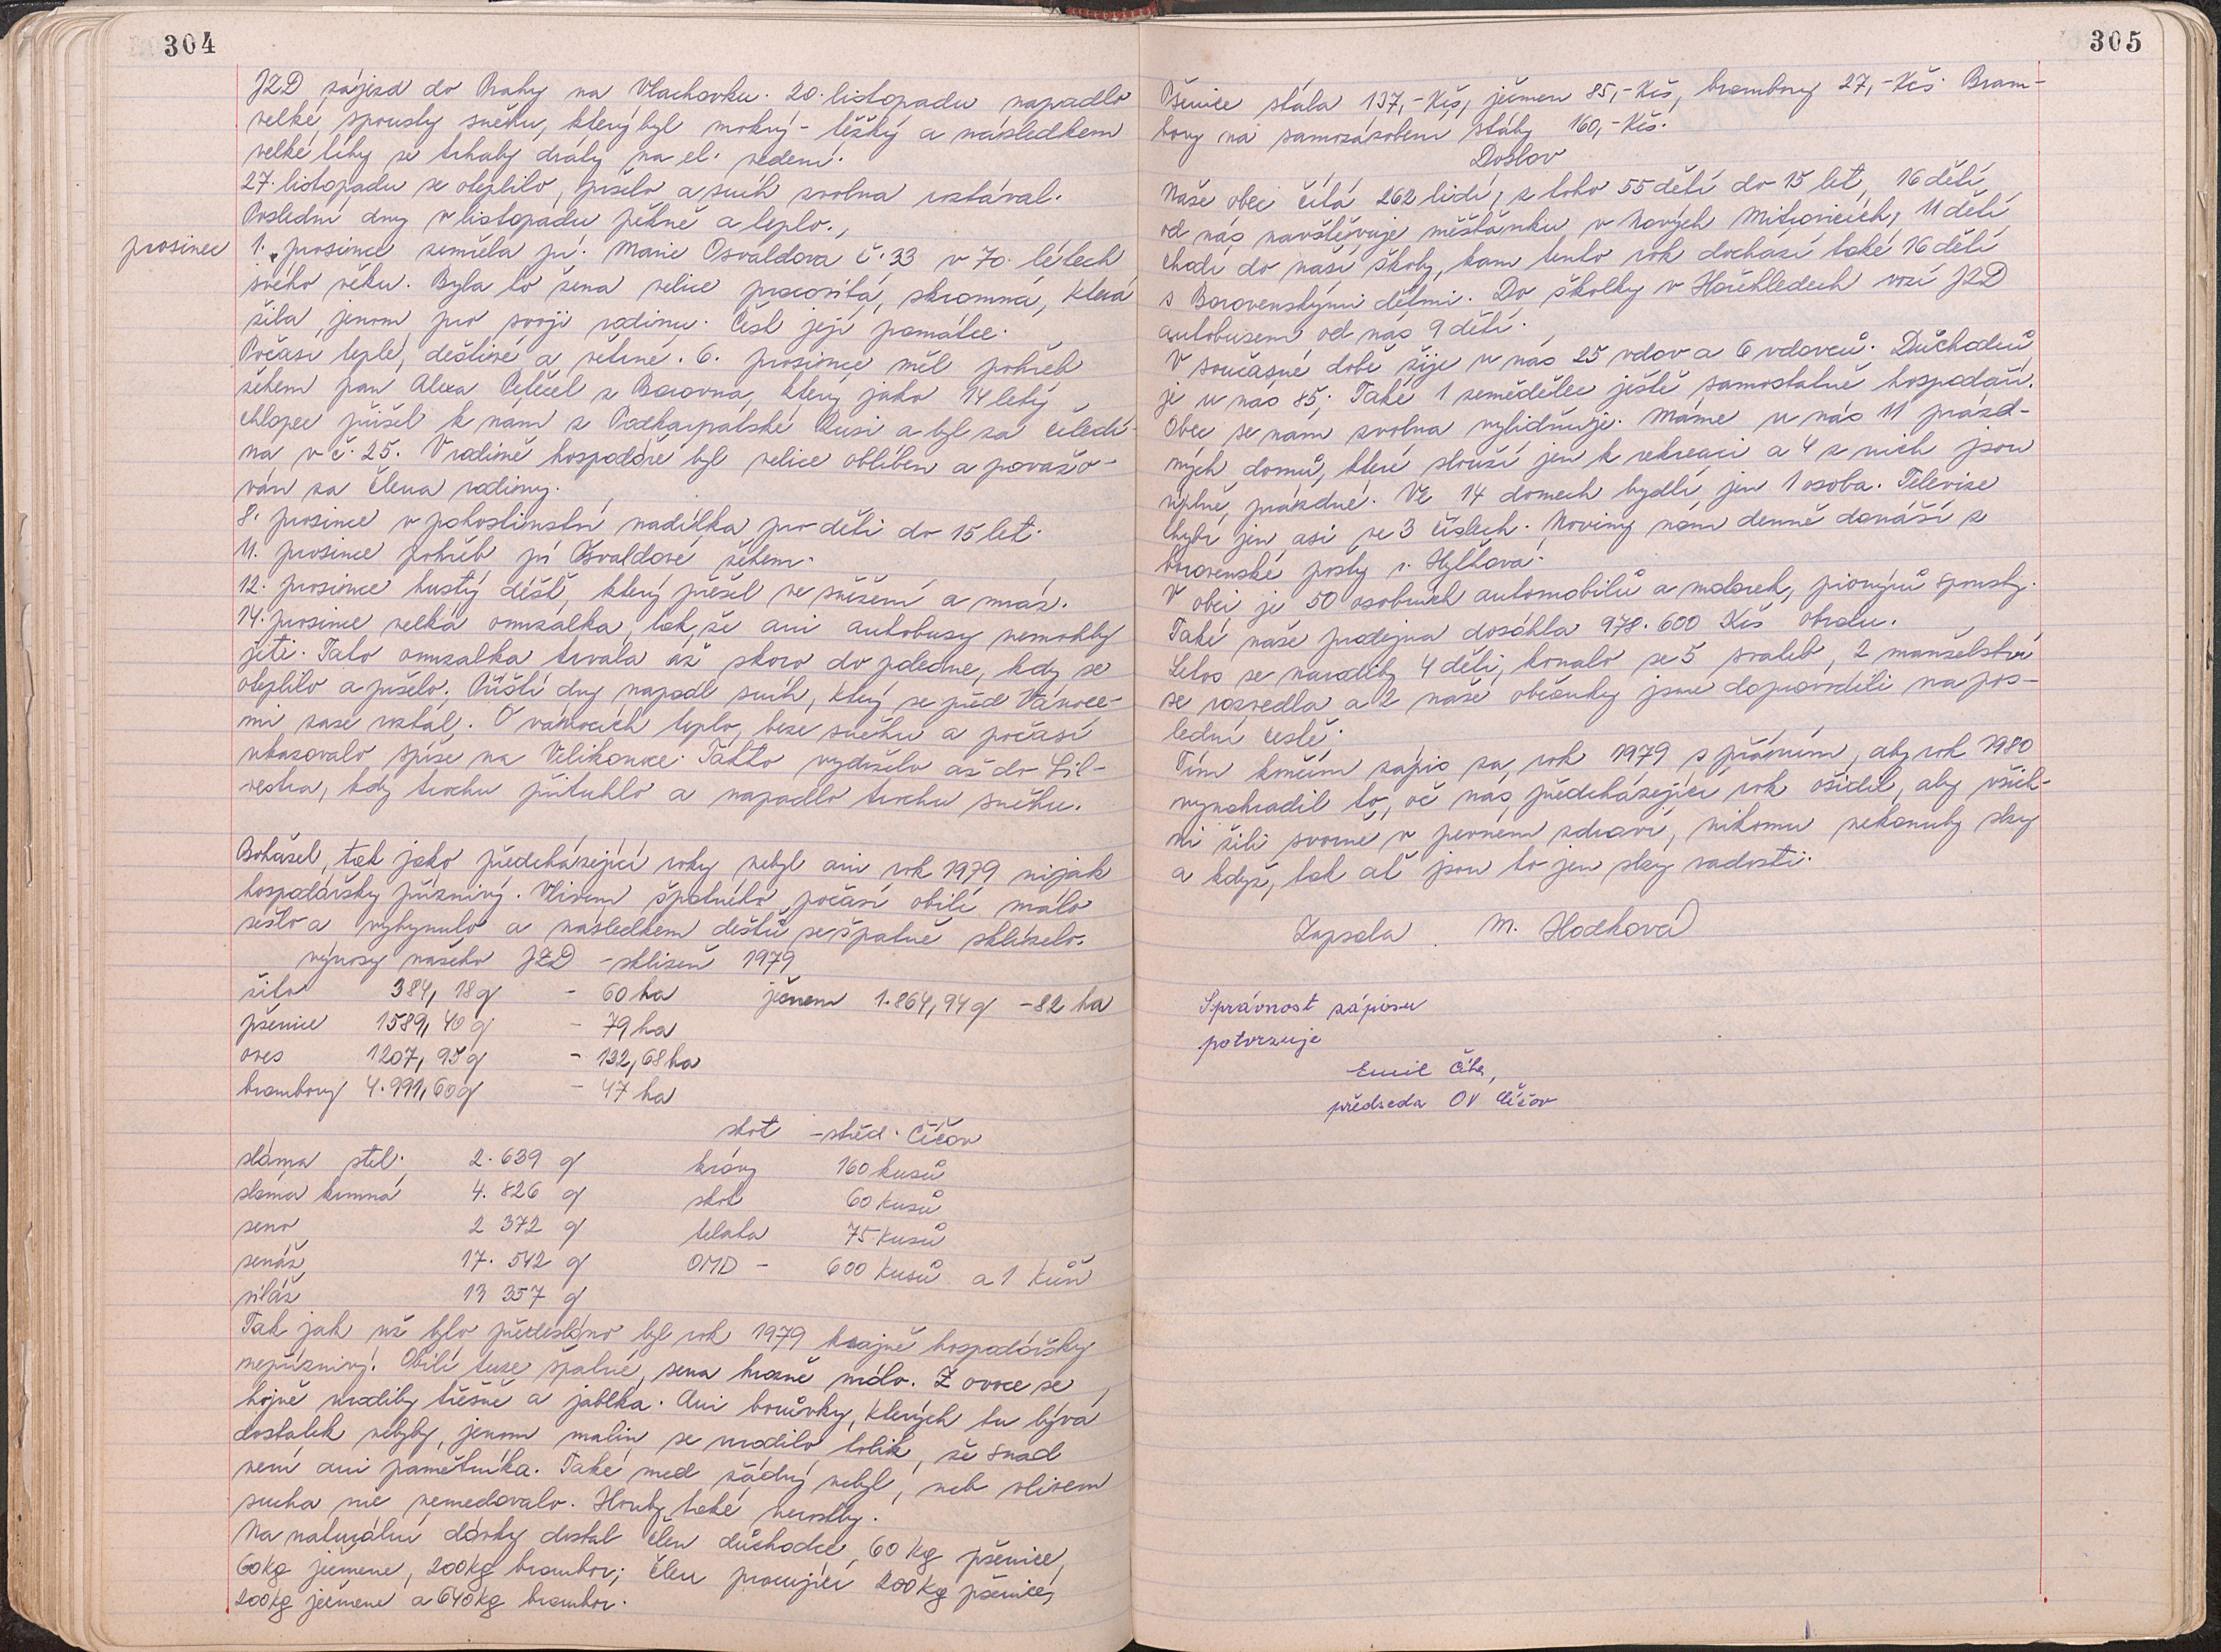 304
JZD zájezd do Prahy na Vlachovku. 20. listopadu napadlo
velké spousty sněhu, který byl mokrý - těžký a následkem
velké tíhy se trhaly dráty na el. vedení.
27. listopadu se oteplilo, pršelo a sníh zvolna roztával.
Poslední dny v listopadu pěkně a teplo.
prosinec
1. prosince zemřela pí. Marie Osvaldova č. 33 v 70. létech
svého věku. Byla to žena velice pracovitá, skromná, která
žila jenom pro svoji rodinu. Čest její památce.
Počasí teplé, deštivé a větrné. 6. prosince měl pohřeb
žehem pan Alexa Petěcel z Borovna, který jako 14 letý
chlapec přišel k nám z Podkarpatské Rusi a byl za čeledí-
na v č. 25. V rodině hospodáře byl velice oblíben a považo-
ván za člena rodiny.
8. prosince v pohostinství nadílka pro děti do 15 let.
11. prosince pohřeb pí Osvaldové žehem.
12. prosince hustý déšť, který přešel ve sněžení a mráz.
14. prosince velká omrzalka, tak, že ani autobusy nemohly
jeti. Tato omrzalka trvala až skoro do poledne, kdy se
oteplilo a pršelo. Příští dny napadl sníh, který se před Vánoce-
mi zase roztál. O vánocích teplo, beze sněhu a počasí
ukazovalo spíše na Velikonoce. Takto vydrželo až do Sil-
vestra, kdy trochu přituhlo a napadlo trochu sněhu.
Bohužel, tak jako předcházející roky nebyl ani rok 1979 nijak
hospodářsky příznivý. Vlivem špatného počasí obilí málo
sešlo a vyhynulo a následkem dešťů se špatně sklízelo.
výnosy našeho JZD - sklizeň 1979
žito 384, 18 q - 60 ha ječmen 1.864,94 q - 82 ha
pšenice 1589, 40 q - 79 ha
oves 1207, 95 q - 132,68 ha
brambory 4.991,60 q - 47 ha
skot - střed. Číčov
sláma stel. 2.639 q krávy 160 kusů
sláma krmná 4.826 q skot 60 kusů
seno 2 372 q telata 75 kusů
senáž 17.542 q OMD - 600 kusů a 1 kůň
siláž 13 357 q
Tak jak už bylo předesláno byl rok 1979 krajně hospodářsky
nepříznivý. Obilí tuze špatné, sena hrozně málo. Z ovoce se
hojně urodily třešně a jablka. Ani borůvky, kterých tu bývá
dostatek nebyly, jenom malin se urodilo tolik, že snad
není ani pamětníka. Také med žádný nebyl, neb vlivem
sucha nic nemedovalo. Houby také nerostly.
Na naturální dávky dostal člen důchodce 60 kg pšenice,
60 kg ječmene, 200 kg brambor; člen pracující 200 kg pšenice,
200 kg ječmene a 640 kg brambor.
305
Pšenice stála 137,- Kčs, ječmen 85,- Kčs, brambory 27,- Kčs. Bram-
bory na samozásobení stály 160,- Kčs.
Doslov
Naše obec čítá 262 lidí, z toho 55 dětí do 15 let, 16 dětí
od nás navštěvuje měšťanku v Nových Mitrovicích, 11 dětí
chodí do naší školy, kam tento rok dochází také 16 dětí
s Borovenskými dětmi. Do školky v Hořehledech vozí JZD
autobusem od nás 9 dětí.
V současné době žije u nás 25 vdov a 6 vdovců. Důchodců
je u nás 85. Také 1 zemědělec ještě samostatně hospodaří.
Obec se nám zvolna vylidňuje. Máme u nás 11 prázd-
ných domů, které slouží jen k rekreaci a 4 z nich jsou
úplně prázdné. Ve 14 domech bydlí jen 1 osoba. Televize
chybí jen asi ve 3 číslech. Noviny nám denně donáší z
borovenské pošty s. Hylťhová.
V obci je 50 osobních automobilů a motorek, pionýrů spousty.
Také naše prodejna dosáhla 978.600 Kčs obratu.
Letos se narodily 4 děti, konalo se 5 svateb, 2 manželství
se rozvedla a 2 naše občanky jsme doprovodili na pos-
lední cestě.
Tím končím zápis za rok 1979 s přáním, aby rok 1980
vynahradil to, oč nás předcházející rok ošidil, aby všich-
ni žili svorně v pevném zdraví, nikomu nekanuly slzy
a když, tak ať jsou to jen slzy radosti.
Zapsala M. Hodková
Správnost zápisu
potvrzuje
Emil Číha,
předseda OV Číčov